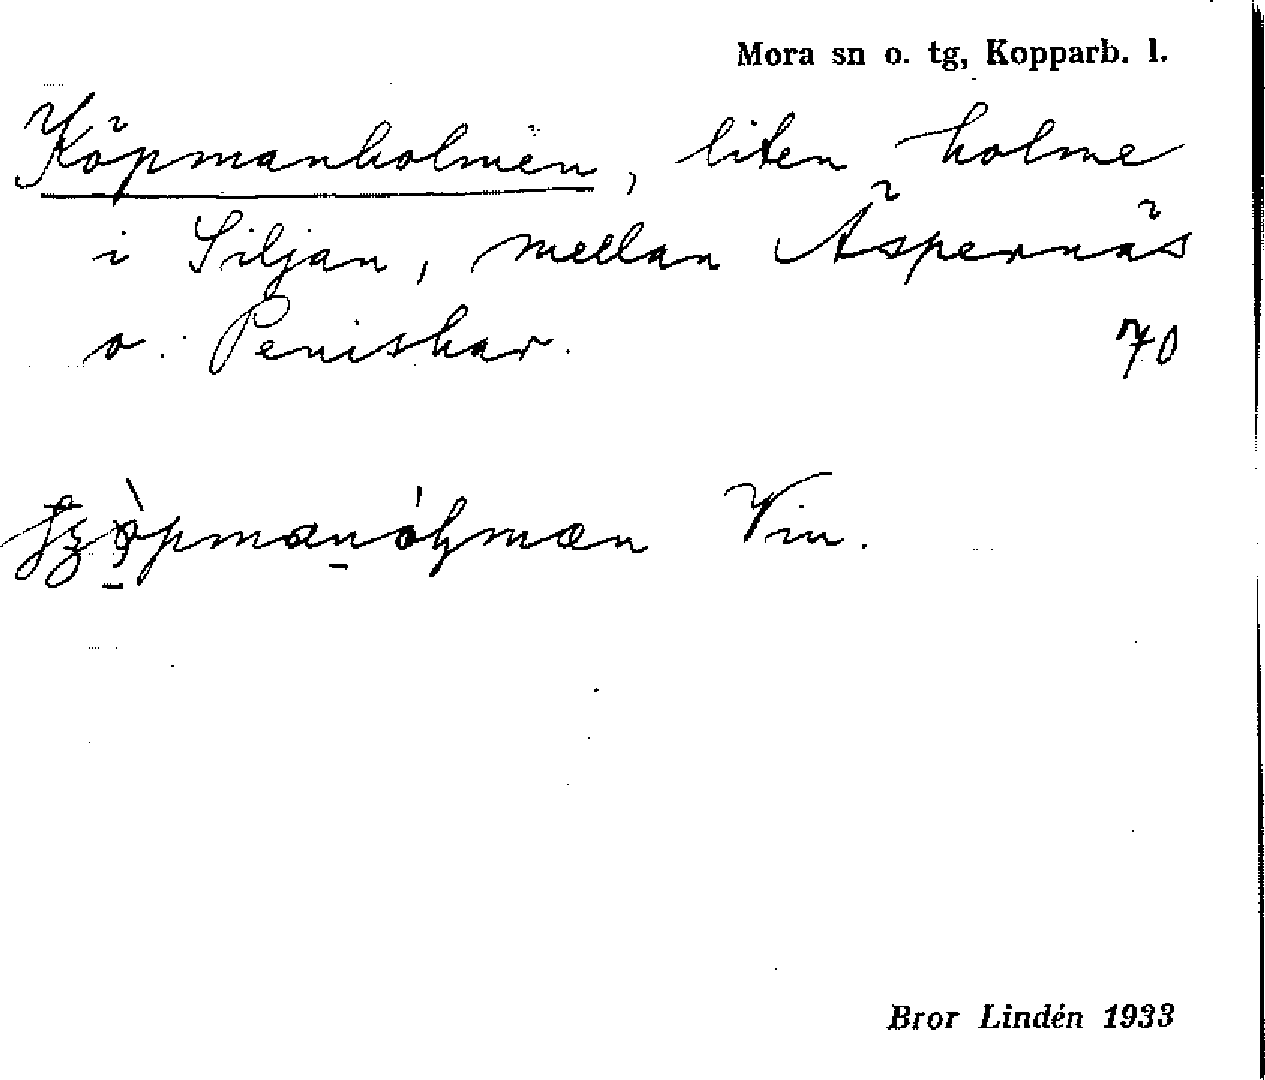 Mora sn o. tg, Kopparb. l.
Köpmanholmen, liten holme
i Siljan, mellan Äspernäs
o. Peniskar. 70
Vin.
Bror Lindén 1933